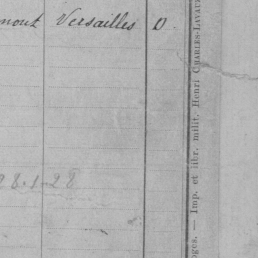 mout Versailles D.
28.1.28
oges. — Imp. et libr. milit. Henri CHARLES-LAVAUZ